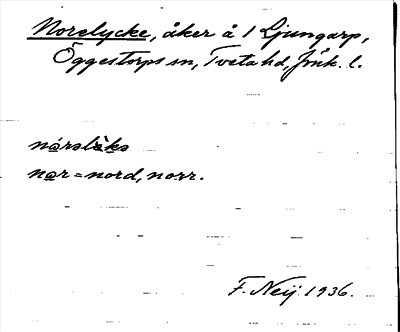 Norelycke, åker å 1 Ljungarp,
Öggestorps sn, Tveta hd, Jönk. l.
nårsläks
når = nord, norr.
F. Neij 1936.